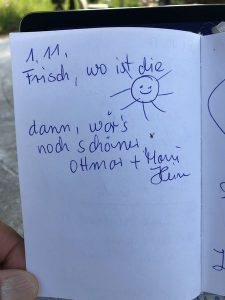 1.11.
Frisch, wo ist die
dann, wär's
noch schöner.
Ottmar + Mani